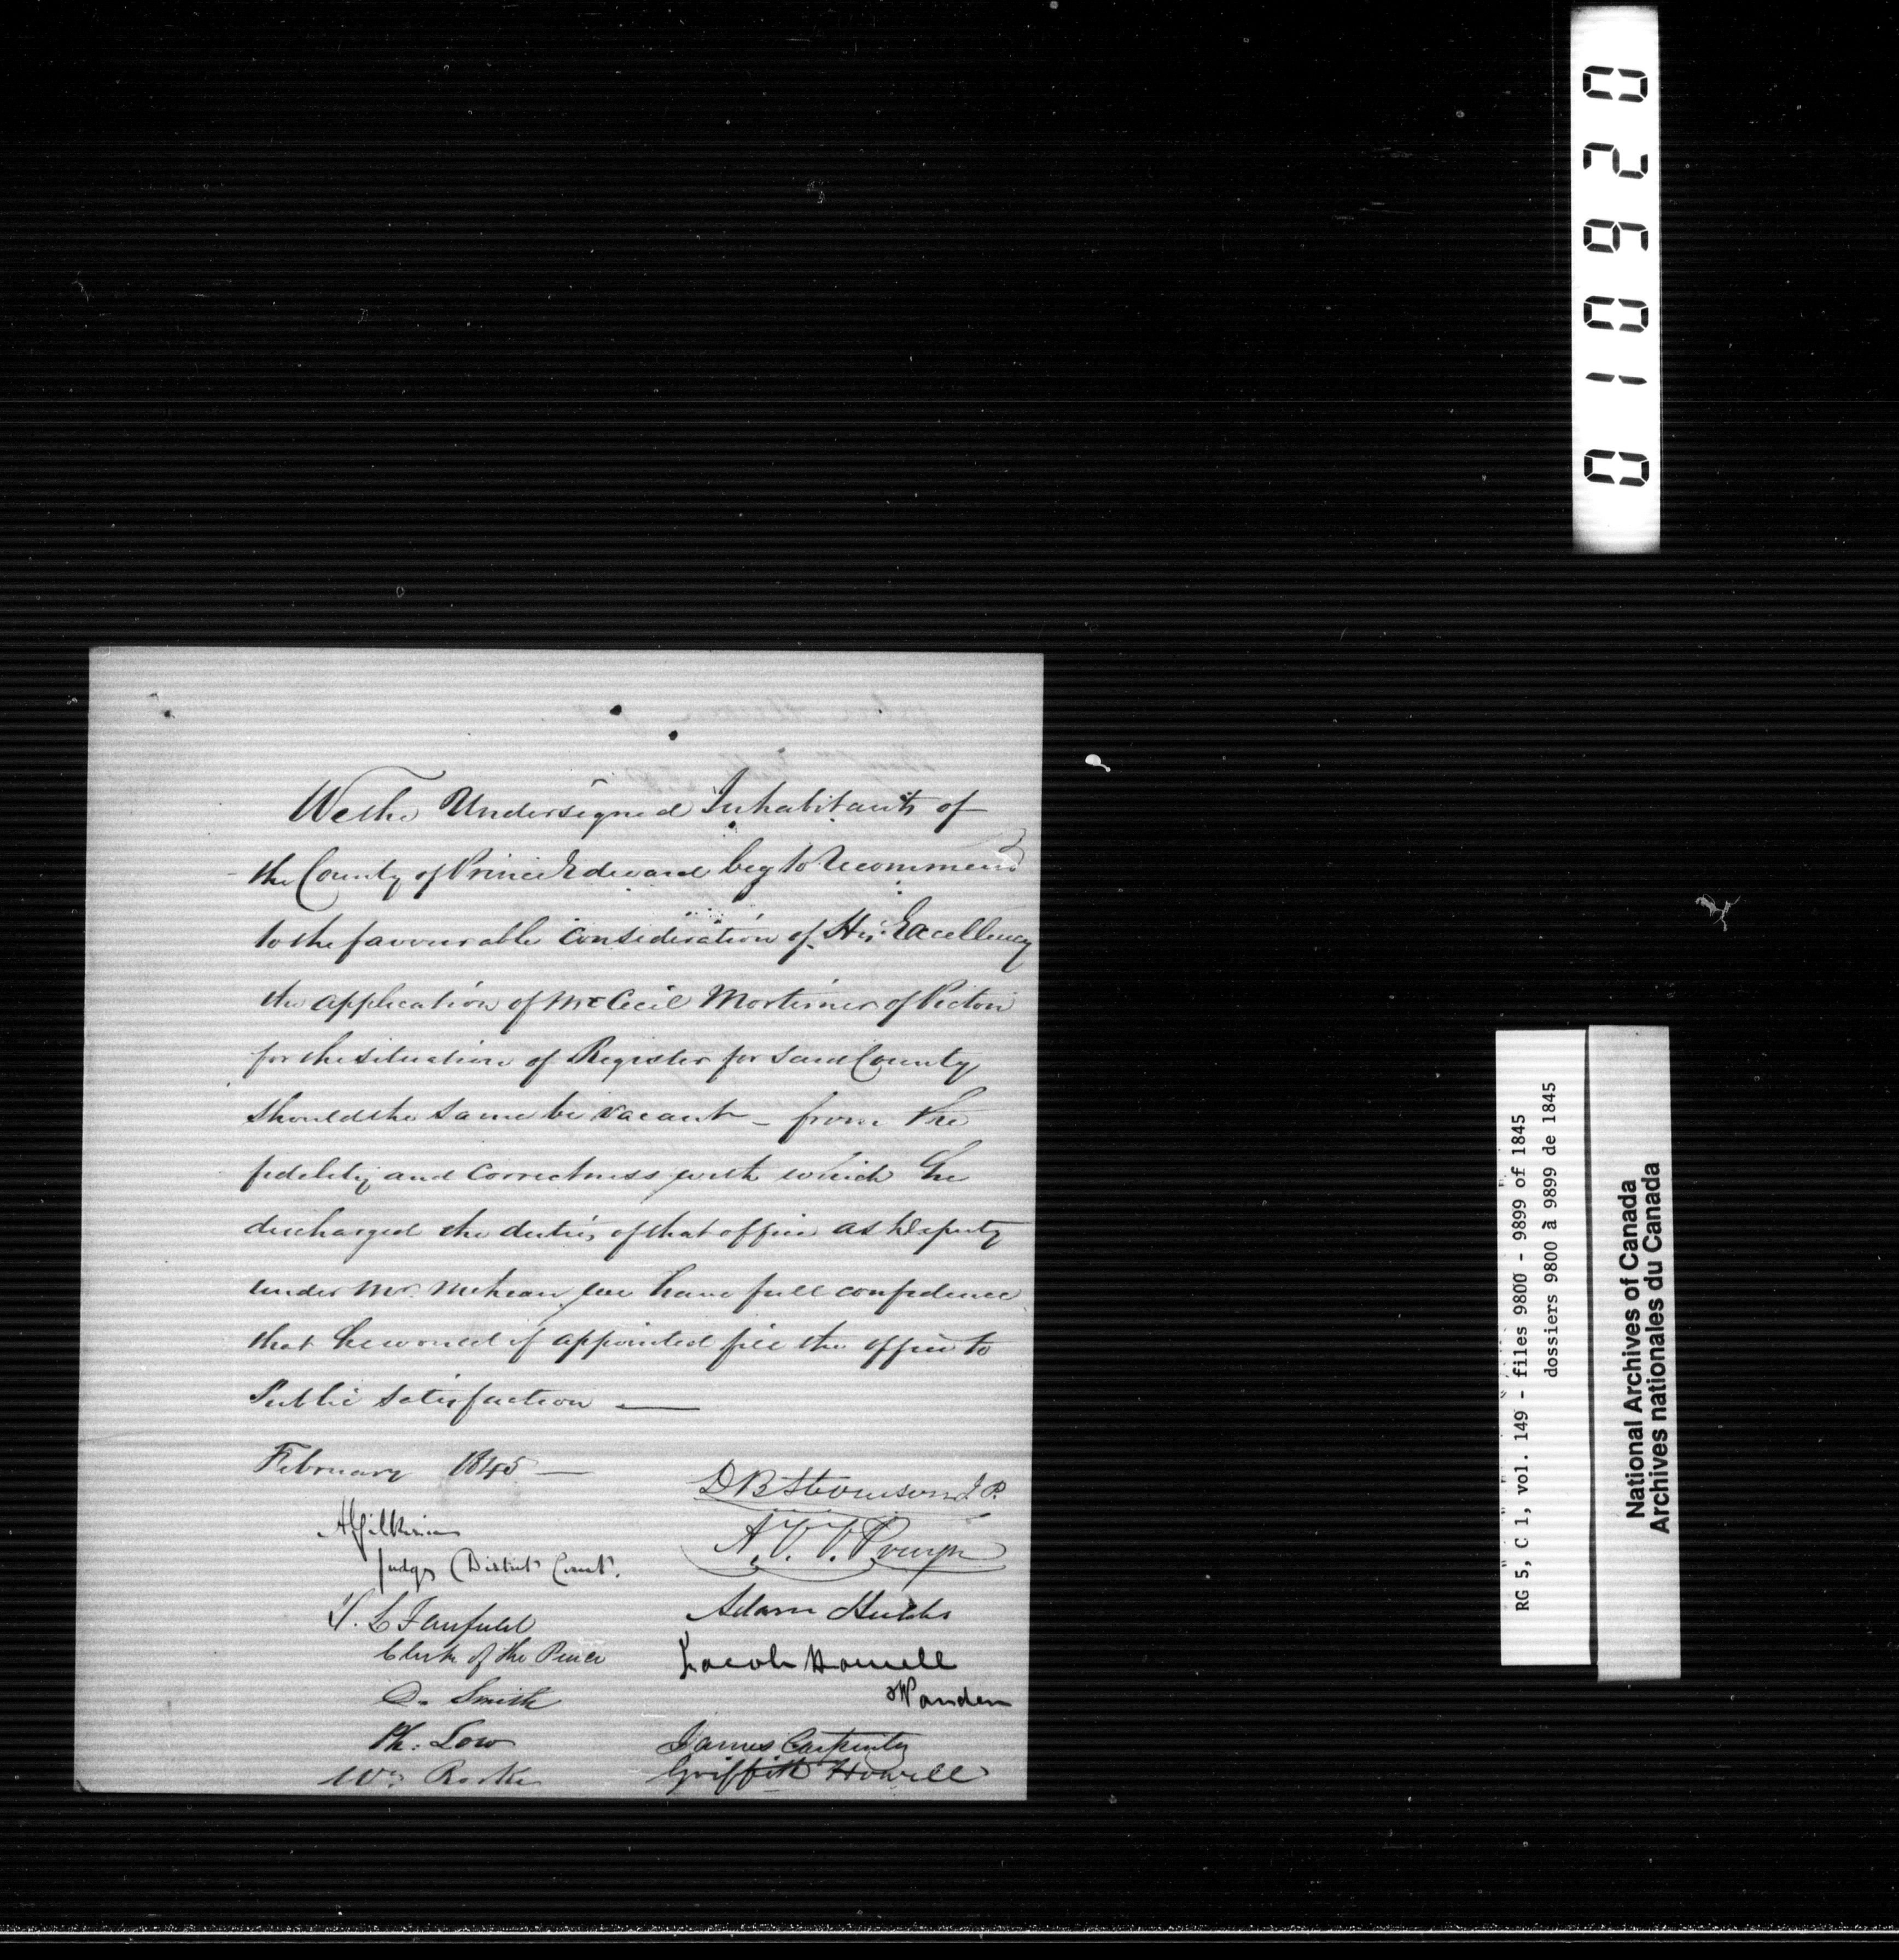 We the Undersigned Inhabitants of
the County of Prince Edward beg to recommend
to the favourable consideration of His Excellency
the application of Mr Cecil Mortimer of Picton
for the situation of Register for said County
should the same be vacant – from the
fidelity and correctness with which he
discharged the duties of that office as Deputy
under Mr. McLean we have full confidence
that he would if appointed fill the office to
Public satisfaction —
February 1845 —
D B Stevenson J. P.
A. V. V. Pruyn
Adam Hubbs
Jacob Howell
Warden
James Carpenter
Griffith Howell
A Gilkison
Judge District Court.
D. L. Fairfield
Clerk of the Peace
D. Smith
Ph: Low
Wm Rorke
010920
RG 5, C 1, vol. 149 - files 9800 - 9899 of 1845
dossiers 9800 à 9899 de 1845
National Archives of Canada
Archives nationales du Canada